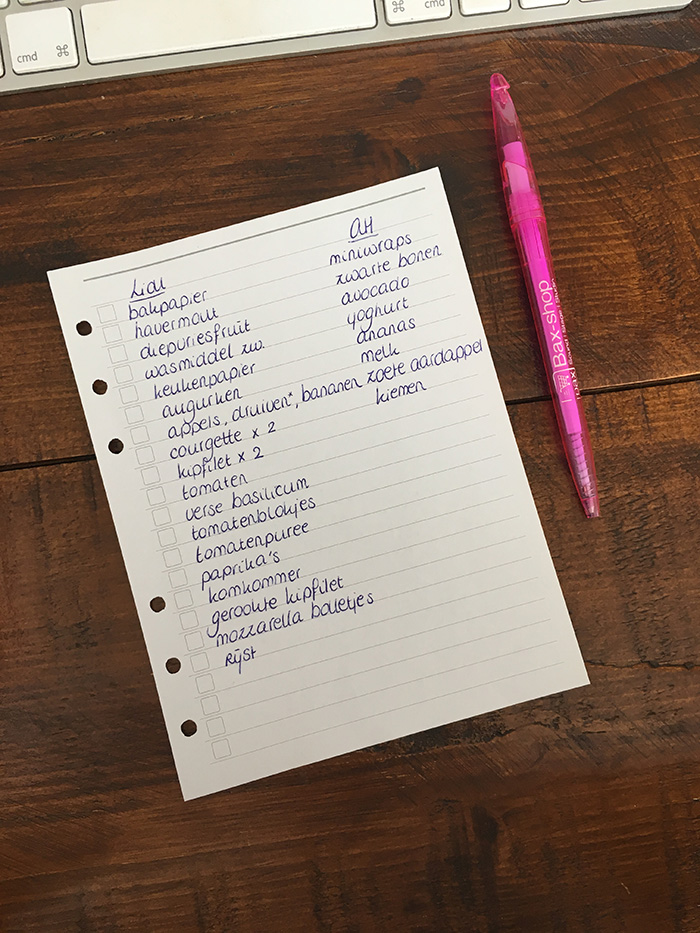 cmd ⌘
⌘ cmd
Lidl
bakpapier
havermout
diepvriesfruit
wasmiddel zw.
keukenpapier
augurken
appels, druiven*, bananen
courgette x 2
kipfilet x 2
tomaten
verse basilicum
tomatenblokjes
tomatenpuree
paprika's
komkommer
gerookte kipfilet
mozzarella bolletjes
rijst
AH
miniwraps
zwarte bonen
avocado
yoghurt
ananas
melk
zoete aardappel
kiemen
Bax-shop